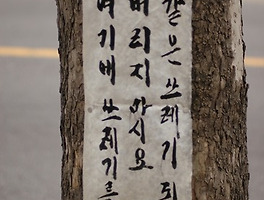 여기에 쓰레기를
버리지 마시오
같은 쓰레기 되